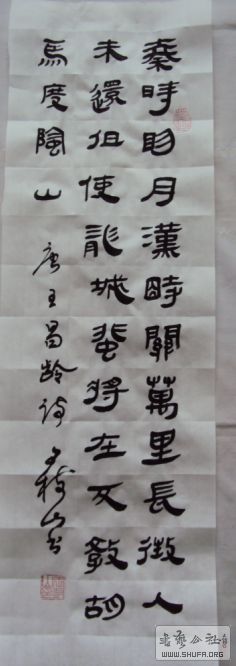 秦時眀月漢時關萬里長徵人
未還但使龍城蜚將在不敎胡
馬度陰山 唐王昌齡詩
書藝公社
WWW.SHUFA.ORG